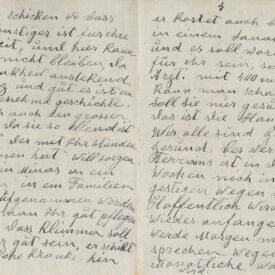 schicken wo dass
nstiger ist für ihre
eit, und hier kann
nicht bleiben da
nkheit ansteckend
und gut es ist an
nehme geschichte.
auch ein grossen
da sie so elend ist
der mit Ihr stunden
nen hat will sorgen
in Minas in ein
n, in ein Familien
aufgenommen werden
man Ihr gut pflegen
Dass Klimma soll
r gut sein, es schikt
viele Kranke hin
4
es kostet auch
in einem Sana
und es soll
für ihr sein, so
Arzt. mit 600 m
kann man scha
soll sie nur gesu
das ist die Hau
Wir alle sind
gesund. Bei der
Herrans ist in d
Wochen mich in
gestigen Wegen
Hoffentlich wird
wieder anfange
werde Morgen m
sprechen wegen
Monatliche
wird